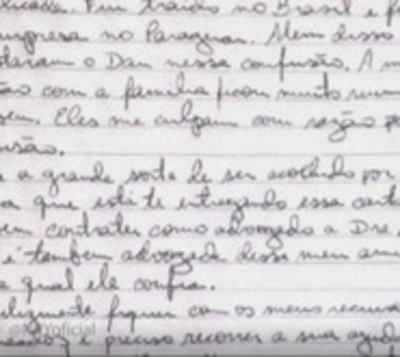 licada. Fui traído no Brasil e f
empresa no Paraguai. Alem disso
taram o Dan nessa confusão. A m
ão com a familia ficou muito ruim
sem. Eles me culpam com razão po
usão.
e a grande sorte de ser acolhido por
a que está te entregando essa carta
em contratei como advogado a Dra.
e é tambem advogada desse meu am
a qual ele confia.
elizmente fiquei com os meus recurso
eados e preciso recorrer a sua ajuda
@ oficial